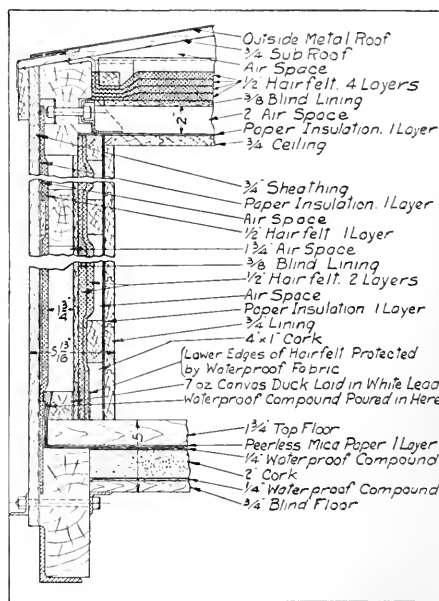 Outside Metal Roof
3/4 Sub Roof
Air Space
1/2" Hairfelt. 4 Layers
3/8 Blind Lining
2" Air Space
Paper Insulation. 1 Layer
3/4 Ceiling
2"
3/4" Sheathing
Paper Insulation. 1 Layer
Air Space
1/2" Hairfelt 1 Layer
1 3/4" Air Space
3/8 Blind Lining
1/2" Hairfelt 2 Layers
Air Space
Paper Insulation 1 Layer
3/4 Lining
4" x 1" Cork
5 13/16"
Lower Edges of Hairfelt Protected
by Waterproof Fabric
7 oz Canvas Duck Laid in White Lead
Waterproof Compound Poured in Here
1 3/4" Top Floor
5"
Peerless Mica Paper 1 Layer
1/4" Waterproof Compound
2" Cork
1/4" Waterproof Compound
3/4" Blind Floor